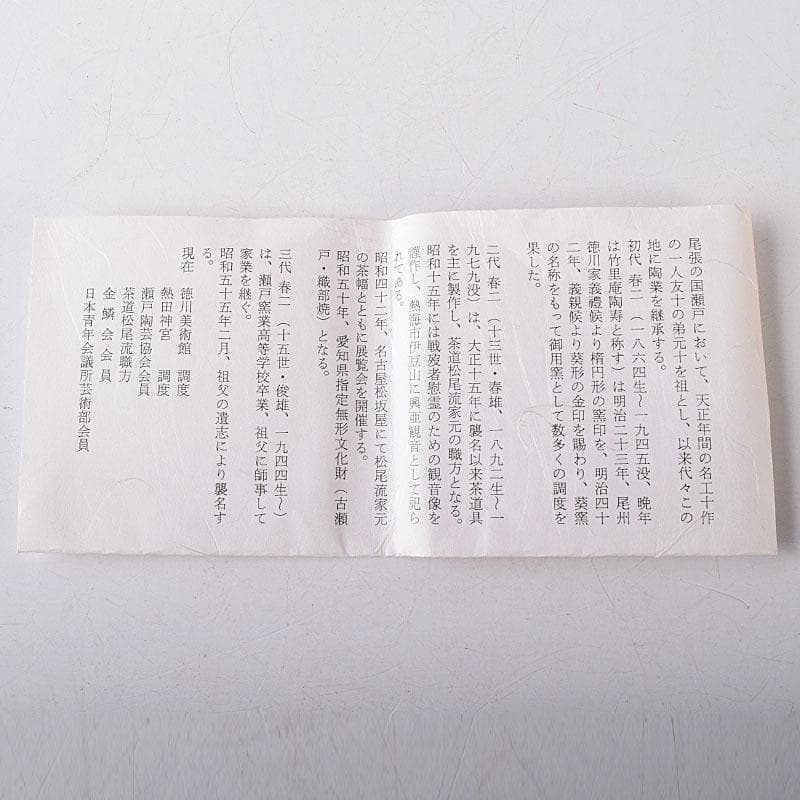 尾張の国瀬戸において、天正年間の名工十作
の一人友十の弟元十を祖とし、以来代々この
地に陶業を継承する。
初代 春二 (一八六四生〜一九四五没、晩年
は竹里庵陶寿と称す) は明治二十三年、尾州
徳川家義禮候より楕円形の窯印を、明治四十
二年、義親候より葵形の金印を賜わり、葵窯
の名称をもって御用窯として数多くの調度を
果した。
二代 春二 (十三世・春雄、一八九二生〜一
九七九没) は、大正十五年に襲名以来茶道具
を主に製作し、茶道松尾流家元の職方となる。
昭和十五年には戦歿者慰霊のための観音像を
謹作し、熱海市伊豆山に興亜観音として祀ら
れてある。
昭和四十二年、名古屋松坂屋にて松尾流家元
の茶幅とともに展覧会を開催する。
昭和五十年、愛知県指定無形文化財 (古瀬
戸・織部焼) となる。
三代 春二 (十五世・俊雄、一九四四生〜)
は、瀬戸窯業高等学校卒業、祖父に師事して
家業を継ぐ。
昭和五十五年二月、祖父の遺志により襲名す
る。
現在 徳川美術館 調度
熱田神宮 調度
瀬戸陶芸協会会員
茶道松尾流職方
金鱗会会員
日本青年会議所芸術部会員